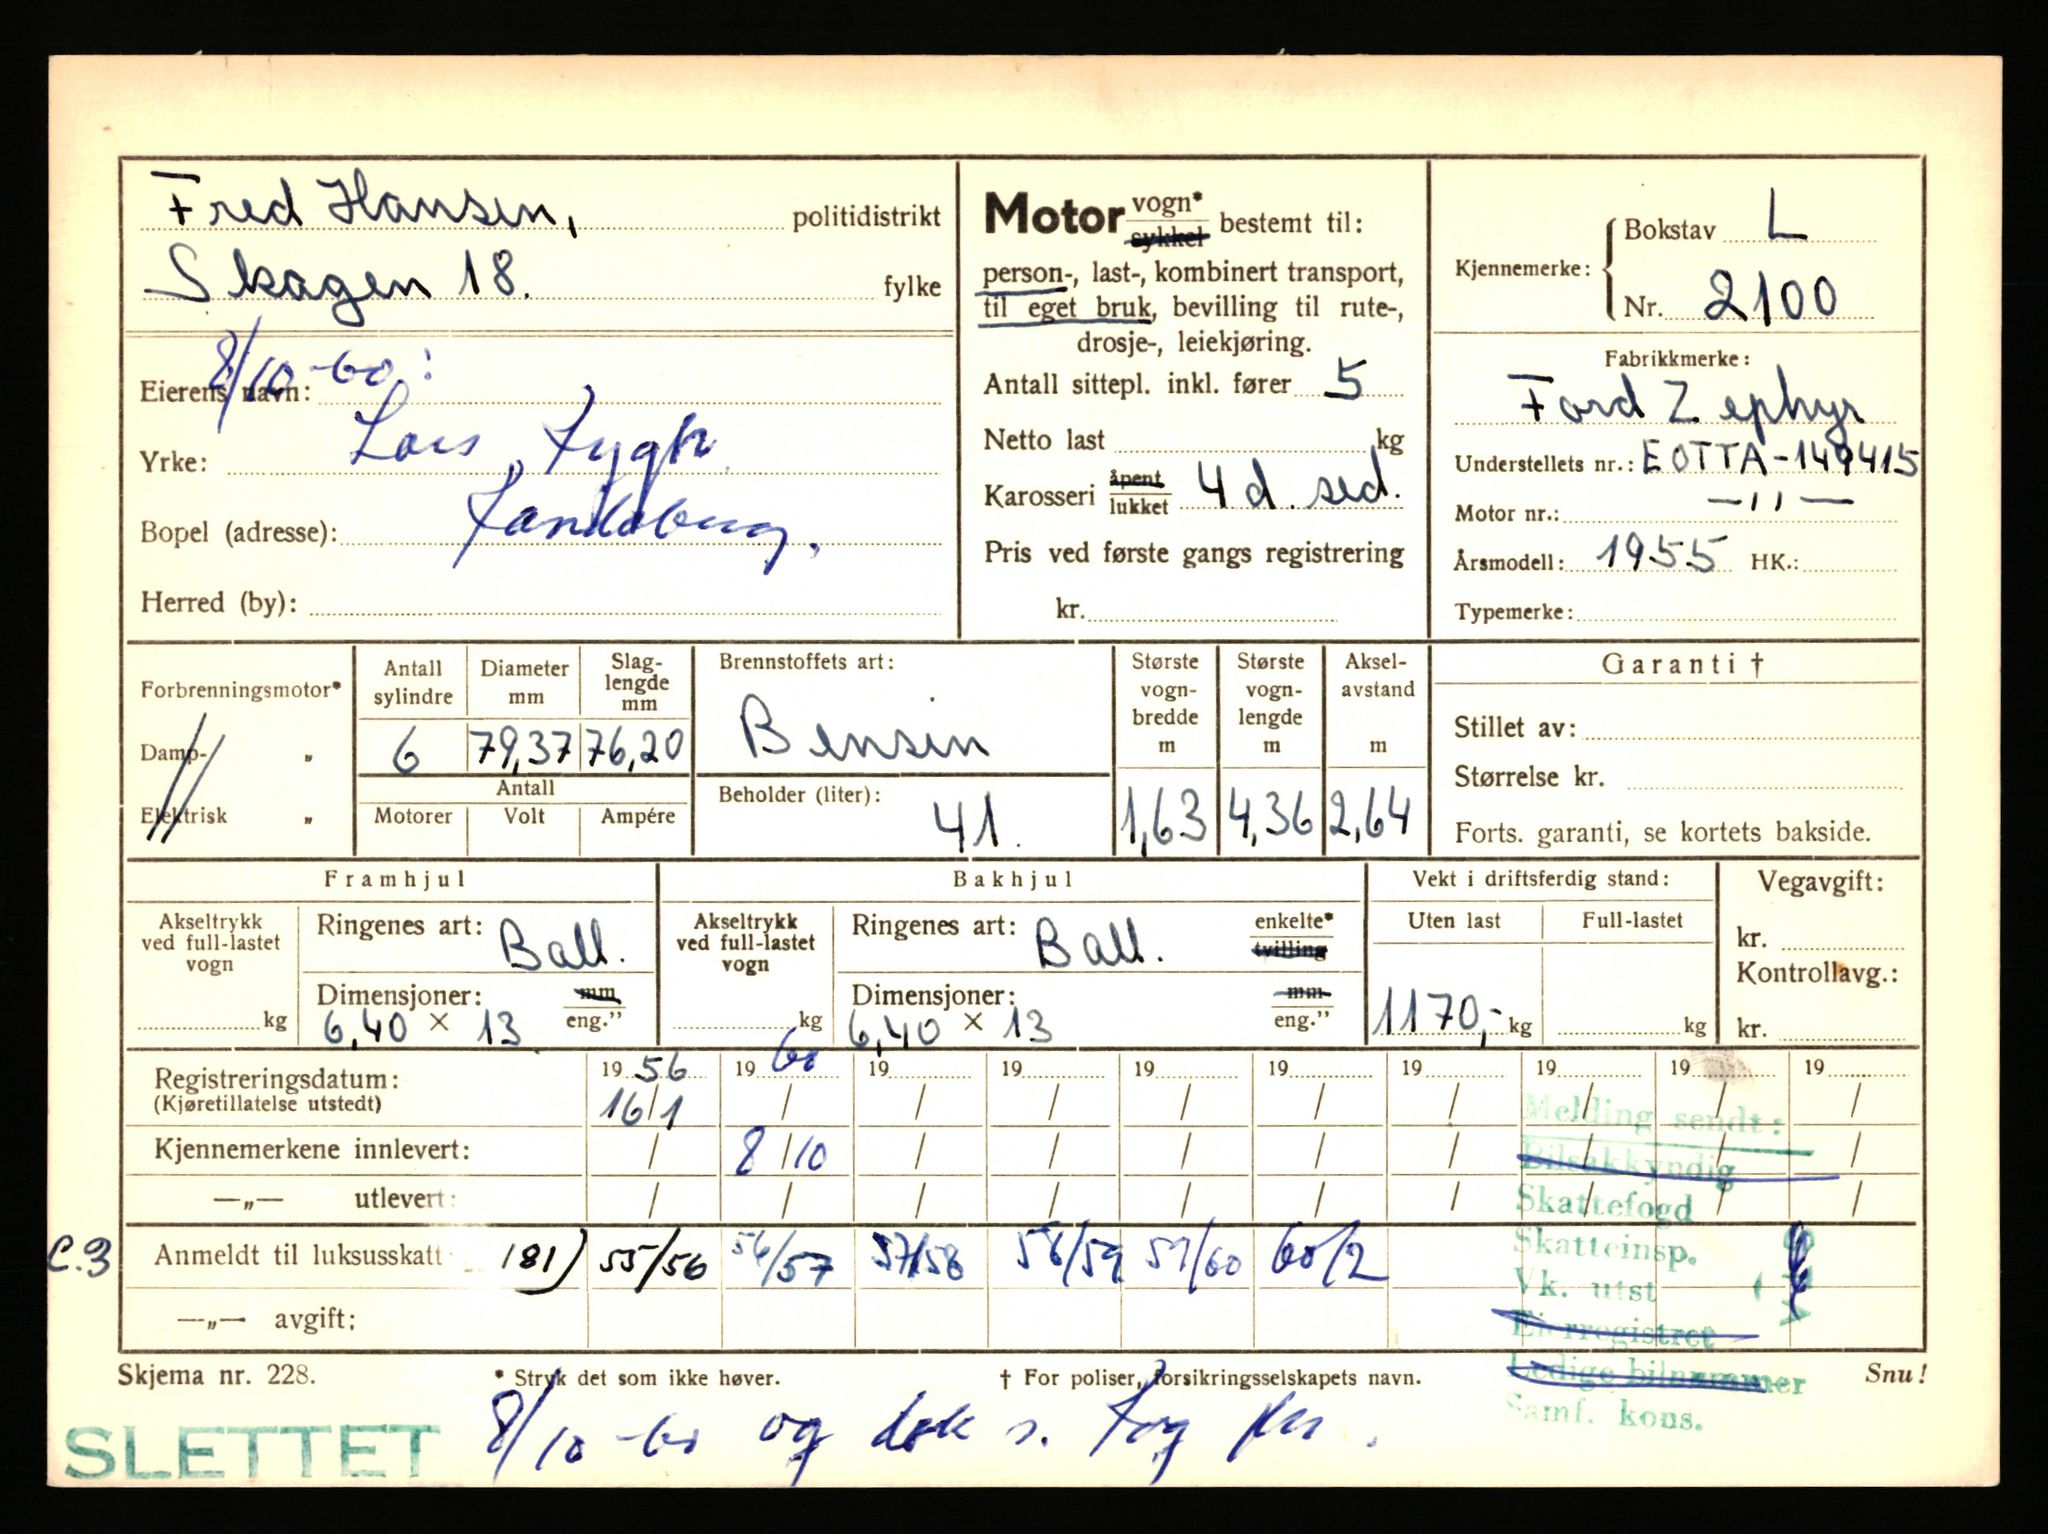 Fred Hansen, politidistrikt
Skagen 18. fylke
8/10-60:
Eierens navn:
Yrke: Lars
Bopel (adresse):
Herred (by):
Motor vogn* sykkel bestemt til:
person-, last-, kombinert transport,
til eget bruk, bevilling til rute-,
drosje-, leiekjøring.
Antall sittepl. inkl. fører 5
Netto last kg
Karosseri åpent lukket 4 d. sed.
Pris ved første gangs registrering
kr.
Kjennemerke: Bokstav L
Nr. 2100
Fabrikkmerke:
Ford Zephyr
Understellets nr.: EOTTA-149415
Motor nr.: —〃—
Årsmodell: 1955 HK.:
Typemerke:
Forbrenningsmotor*
Damp- „
Elektrisk „
Antall sylindre 6
Diameter mm 79,37
Slag-lengde mm 76,20
Antall
Motorer Volt Ampére
Brennstoffets art:
Bensin
Beholder (liter): 41.
Største vogn-bredde m 1,63
Største vogn-lengde m 4,36
Aksel-avstand m 2,64
Garanti †
Stillet av:
Størrelse kr.
Forts. garanti, se kortets bakside.
Framhjul
Akseltrykk ved full-lastet vogn kg
Ringenes art: Ball.
Dimensjoner: mm
6,40 × 13 eng.”
Bakhjul
Akseltrykk ved full-lastet vogn kg
Ringenes art: Ball. enkelte* tvilling
Dimensjoner: mm
6,40 × 13 eng.”
Vekt i driftsferdig stand:
Uten last Full-lastet
1170,- kg kg
Vegavgift:
kr.
Kontrollavg.:
kr.
Registreringsdatum: 19 56 19 60 19 19 19 19 19 19 19 19
(Kjøretillatelse utstedt) 16/1 / / / / / / / / /
Kjennemerkene innlevert: / 8/10 / / / / / / / /
—„— utlevert: / / / / / / / / / /
C.3 Anmeldt til luksusskatt 181) 55/56 56/57 57/58 58/59 59/60 60/2
—„— avgift:
Melding sendt:
Bilsakkyndig
Skattefogd
Skatteinsp.
Vk. utst
Eierregistret
Ledige bilnummer
Samf. kons.
Skjema nr. 228. * Stryk det som ikke høver. † For poliser, forsikringsselskapets navn. Snu!
SLETTET 8/10-60 og